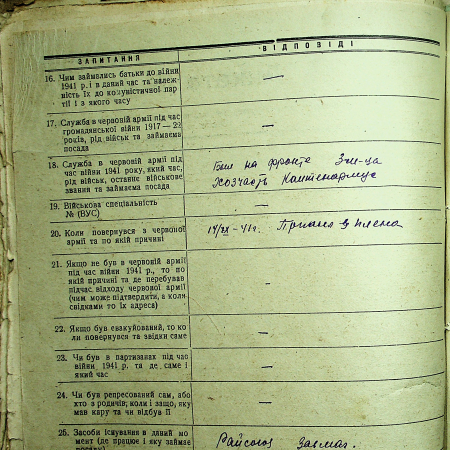 ЗАПИТАННЯ
ВІДПОВІДІ
16. Чим займались батьки до війни
1941 р. і в даний час та належ-
ність їх до комуністичної пар-
тії і з якого часу
—
17. Служба в червоній армії під час
громадянської війни 1917—22
років, рід військ та займаєма
посада
—
18. Служба в червоній армії під
час війни 1941 року, який час,
рід військ, останне військове
звання та займаєма посада
Был на фронте 3 м-ца
Хозчасть
19. Військова спеціальність
№ (ВУС)
—
20. Коли повернувся з червоної
армії та по якій причині
-41г. Пришел з плена
21. Якщо не був в червоній армії
під час війни 1941 р., то по
якій причині та де перебував
підчас відходу червоної армії
(чим може підтвердити, а коли
свідками то їх адреса)
—
22. Якщо був евакуйований, то ко-
ли повернувся та звідки саме
—
23. Чи був в партизанах під час
війни 1941 р. та де саме і
який час
—
24. Чи був репресований сам, або
хто з родичів; коли і защо, яку
мав кару та чи відбув її
—
25. Засоби існування в даний мо-
мент (де працює і яку займає
посаду)
Райсоюз завмаг.